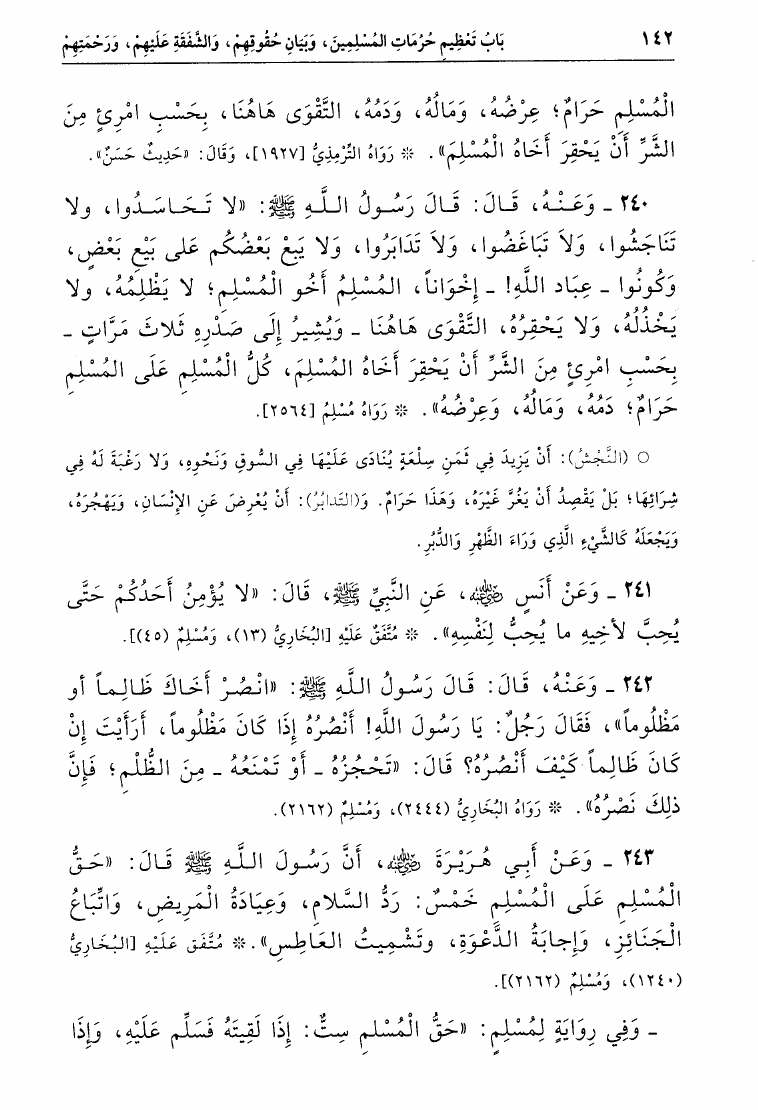 ١٤٢ بَابُ تَعْظِيمِ حُرُمَاتِ المُسْلِمِينَ، وَبَيَانِ حُقُوقِهِمْ، وَالشَّفَقَةِ عَلَيْهِمْ، وَرَحْمَتِهِمْ
الْمُسْلِمِ حَرَامٌ؛ عِرْضُهُ، وَمَالُهُ، وَدَمُهُ، التَّقْوَى هَاهُنَا، بِحَسْبِ امْرِئٍ مِنَ
الشَّرِّ أَنْ يَحْقِرَ أَخَاهُ الْمُسْلِمَ». * رَوَاهُ التِّرْمِذِيُّ [١٩٢٧]، وَقَالَ: «حَدِيثٌ حَسَنٌ».
٢٤٠ ـ وَعَنْهُ، قَالَ: قَالَ رَسُولُ اللهِ ﷺ: «لا تَحَاسَدُوا، ولا
تَنَاجَشُوا، وَلاَ تَبَاغَضُوا، وَلاَ تَدَابَرُوا، وَلا يَبِعْ بَعْضُكُم عَلى بَيْعِ بَعْضٍ،
وَكُونُوا ـ عِبَاد اللَّهِ! ـ إِخْوَاناً، المُسْلِمُ أَخُو الْمُسْلِمِ؛ لا يَظْلِمُهُ، ولا
يَخْذُلُهُ، وَلا يَحْقِرُهُ، التَّقْوَى هَاهُنَا ـ وَيُشِيرُ إِلَى صَدْرِهِ ثَلاثَ مَرَّاتٍ ـ
بِحَسْبِ امْرِئٍ مِنَ الشَّرِّ أَنْ يَحْقِرَ أَخَاهُ المُسْلِمَ، كُلُّ الْمُسْلِمِ عَلَى المُسْلِمِ
حَرَامٌ؛ دَمُهُ، وَمَالُهُ، وَعِرْضُهُ». * رَوَاهُ مُسْلِمٌ [٢٥٦٤].
○ (النَّجْشُ): أَنْ يَزِيدَ فِي ثَمَنِ سِلْعَةٍ يُنَادَى عَلَيْهَا فِي السُّوقِ وَنَحْوِهِ، وَلا رَغْبَةَ لَهُ فِي
شِرَائِهَا؛ بَلْ يَقْصِدُ أَنْ يَغُرَّ غَيْرَهُ، وَهَذَا حَرَامٌ. وَ(التَّدَابُرُ): أَنْ يُعْرِضَ عَنِ الإِنْسَانِ، وَيَهْجُرَهُ،
وَيَجْعَلَهُ كَالشَّيْءِ الَّذِي وَرَاءَ الظَّهْرِ وَالدُّبُرِ.
٢٤١ ـ وَعَنْ أَنَسٍ رضي الله عنه، عَنِ النَّبِيِّ ﷺ، قَالَ: «لا يُؤْمِنُ أَحَدُكُمْ حَتَّى
يُحِبَّ لأَخِيهِ ما يُحِبُّ لِنَفْسِهِ». * مُتَّفَقٌ عَلَيْهِ [البُخَارِيُّ (١٣)، وَمُسْلِمٌ (٤٥)].
٢٤٢ ـ وَعَنْهُ، قَالَ: قَالَ رَسُولُ اللهِ ﷺ: «انْصُرْ أَخَاكَ ظَالِماً أو
مَظْلُوماً»، فَقَالَ رَجُلٌ: يَا رَسُولَ اللهِ! أَنْصُرُهُ إِذَا كَانَ مَظْلُوماً، أَرَأَيْتَ إِنْ
كَانَ ظَالِماً كَيْفَ أَنْصُرُهُ؟ قَالَ: «تَحْجُزُهُ ـ أَوْ تَمْنَعُهُ ـ مِنَ الظُّلْمِ؛ فَإِنَّ
ذلِكَ نَصْرُهُ». * رَوَاهُ البُخَارِيُّ (٢٤٤٤)، وَمُسْلِمٌ (٢١٦٢).
٢٤٣ ـ وَعَنْ أَبِي هُرَيْرَةَ رضي الله عنه، أَنَّ رَسُولَ اللهِ ﷺ قَالَ: «حَقُّ
الْمُسْلِمِ عَلَى الْمُسْلِمِ خَمْسٌ: رَدُّ السَّلامِ، وَعِيَادَةُ الْمَرِيضِ، وَاتِّبَاعُ
الْجَنَائِزِ، وَإِجابَةُ الدَّعْوَةِ، وتَشْمِيتُ العَاطِسِ». * مُتَّفَق عَلَيْهِ [البُخَارِيُّ
(١٢٤٠)، وَمُسْلِمٌ (٢١٦٢)].
ـ وَفِي رِوَايَةٍ لِمُسْلِمٍ: «حَقُّ الْمُسْلمِ سِتٌّ: إِذَا لَقِيتَهُ فَسَلِّم عَلَيْهِ، وَإِذَا